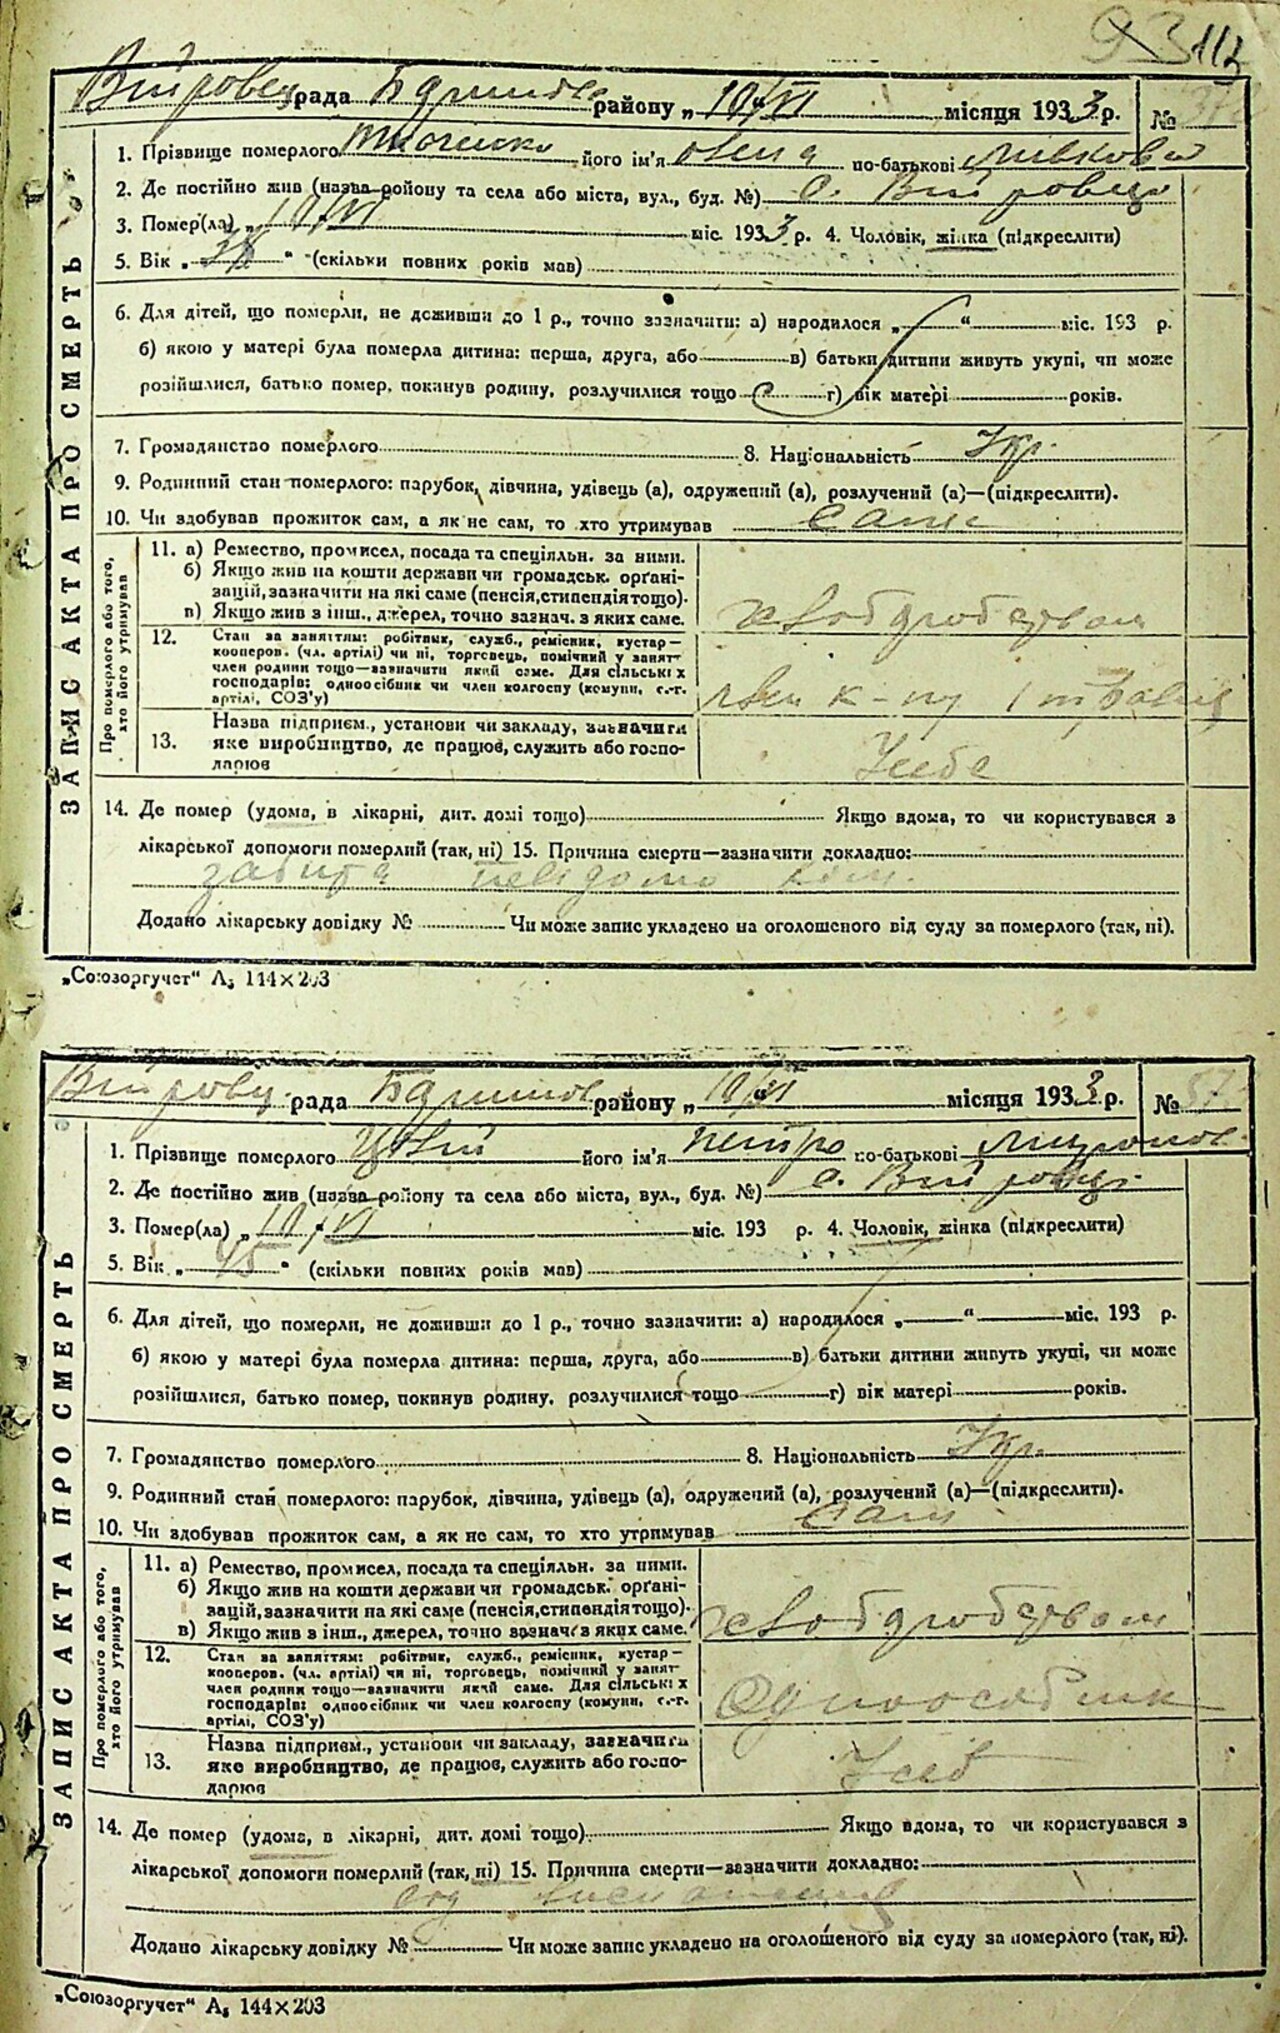 93 113
рада районУ „ 10/VI місяця 1933 р. №
ЗАПИС АКТА ПРО СМЕРТЬ
1. Прізвище померлого його ім'я по-батькові
2. Де постійно жив (назва району та села або міста, вул., буд. №) с.
3. Помер(ла) „ 10/VI міс. 1933 р. 4. Чоловік, жінка (підкреслити)
5. Вік „ “ (скільки повних років мав)
6. Для дітей, що померли, не доживши до 1 р., точно зазначити: а) народилося „ “ міс. 193 р.
б) якою у матері була померла дитина: перша, друга, або в) батьки дитини живуть укупі, чи може
розійшлися, батько помер, покинув родину, розлучилися тощо г) вік матері років.
7. Громадянство померлого 8. Національність Укр.
9. Родинний стан померлого: парубок, дівчина, удівець (а), одружений (а), розлучений (а)—(підкреслити).
10. Чи здобував прожиток сам, а як не сам, то хто утримував сами
Про померлого або того, хто його утримував
11. а) Ремество, промисел, посада та спеціяльн. за ними.
б) Якщо жив на кошти держави чи громадськ. орґані-
зацій, зазначити на які саме (пенсія, стипендія тощо).
в) Якщо жив з інш., джерел, точно зазнач. з яких саме.
хлібдробством
12. Стан за заняттям: робітник, служб., ремісник, кустар—
кооперов. (чл. артілі) чи ні, торговець, помічний у занят-
член родини тощо—зазначити який саме. Для сільських
господарів: одноосібник чи член колгоспу (комуни, с.-г.
артілі, СОЗ'у)
член к-пу 1 травня
13. Назва підприєм., установи чи закладу, зазначити
яке виробництво, де працюв, служить або госпо-
дарюв
У себе
14. Де помер (удома, в лікарні, дит. домі тощо) Якщо вдома, то чи користувався з
лікарської допомоги померлий (так, ні) 15. Причина смерти—зазначити докладно:
забита невідомо ким.
Додано лікарську довідку № Чи може запис укладено на оголошеного від суду за померлого (так, ні).
„Союзоргучет“ А₅ 144×203
рада району „ 10/VI місяця 1933 р. №
ЗАПИС АКТА ПРО СМЕРТЬ
1. Прізвище померлого Цвій його ім'я Петро по-батькові
2. Де постійно жив (назва району та села або міста, вул., буд. №) с.
3. Помер(ла) „ 10/VI міс. 193 р. 4. Чоловік, жінка (підкреслити)
5. Вік „ 45 “ (скільки повних років мав)
6. Для дітей, що померли, не доживши до 1 р., точно зазначити: а) народилося „ “ міс. 193 р.
б) якою у матері була померла дитина: перша, друга, або в) батьки дитини живуть укупі, чи може
розійшлися, батько помер, покинув родину, розлучилися тощо г) вік матері років.
7. Громадянство померлого 8. Національність Укр.
9. Родинний стан померлого: парубок, дівчина, удівець (а), одружений (а), розлучений (а)—(підкреслити).
10. Чи здобував прожиток сам, а як не сам, то хто утримував сам
Про померлого або того, хто його утримував
11. а) Ремество, промисел, посада та спеціяльн. за ними.
б) Якщо жив на кошти держави чи громадськ. орґані-
зацій, зазначити на які саме (пенсія, стипендія тощо).
в) Якщо жив з інш., джерел, точно зазнач. з яких саме.
хлібдробством
12. Стан за заняттям: робітник, служб., ремісник, кустар—
кооперов. (чл. артілі) чи ні, торговець, помічний у занят-
член родини тощо—зазначити який саме. Для сільських
господарів: одноосібник чи член колгоспу (комуни, с.-г.
артілі, СОЗ'у)
Одноособник
13. Назва підприєм., установи чи закладу, зазначити
яке виробництво, де працюв, служить або госпо-
дарюв
У себ
14. Де помер (удома, в лікарні, дит. домі тощо) Якщо вдома, то чи користувався з
лікарської допомоги померлий (так, ні) 15. Причина смерти—зазначити докладно:
од виснаження
Додано лікарську довідку № Чи може запис укладено на оголошеного від суду за померлого (так, ні).
„Союзоргучет“ А₅ 144×203